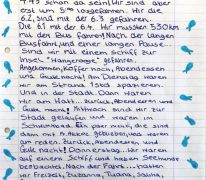 7:45 schon da sein. Wir sind aber
erst um 8:00 losgefahren. Wir die
6.2, sind mit der 6.3 gefahren.
Die 6.1 mit der 6.4. Wir mussten 530km
mit den Bus fahren. Nach der langen
Busfahrt, und einer langen Pause.
Sind wir mit einem Schiff zur
Insel "Hangerooge" gefahren.
Angekommen, Koffer hoch, Abendessen
und Gute nacht! Am Dienstag waren
wir am Strand 7 std spazieren.
Und in der Stadt. Dann hatten
wir am Watt... zurück, Abendessen und
Gute nacht! Mittwoch sind wir zur
Stadt gelaufen und waren im
Schwimmbad. Ein paar wenige, die sind
dann mit A. Acker geblieben, was haben
am reden. Zurück, Abendessen und
Gute nacht! Donnerstag. Wir waren
auf einem Schiff und haben Seehunde
beobachtet. Nach der Party... haben
wir Freizeit, Susanna, Tijana, Saina,